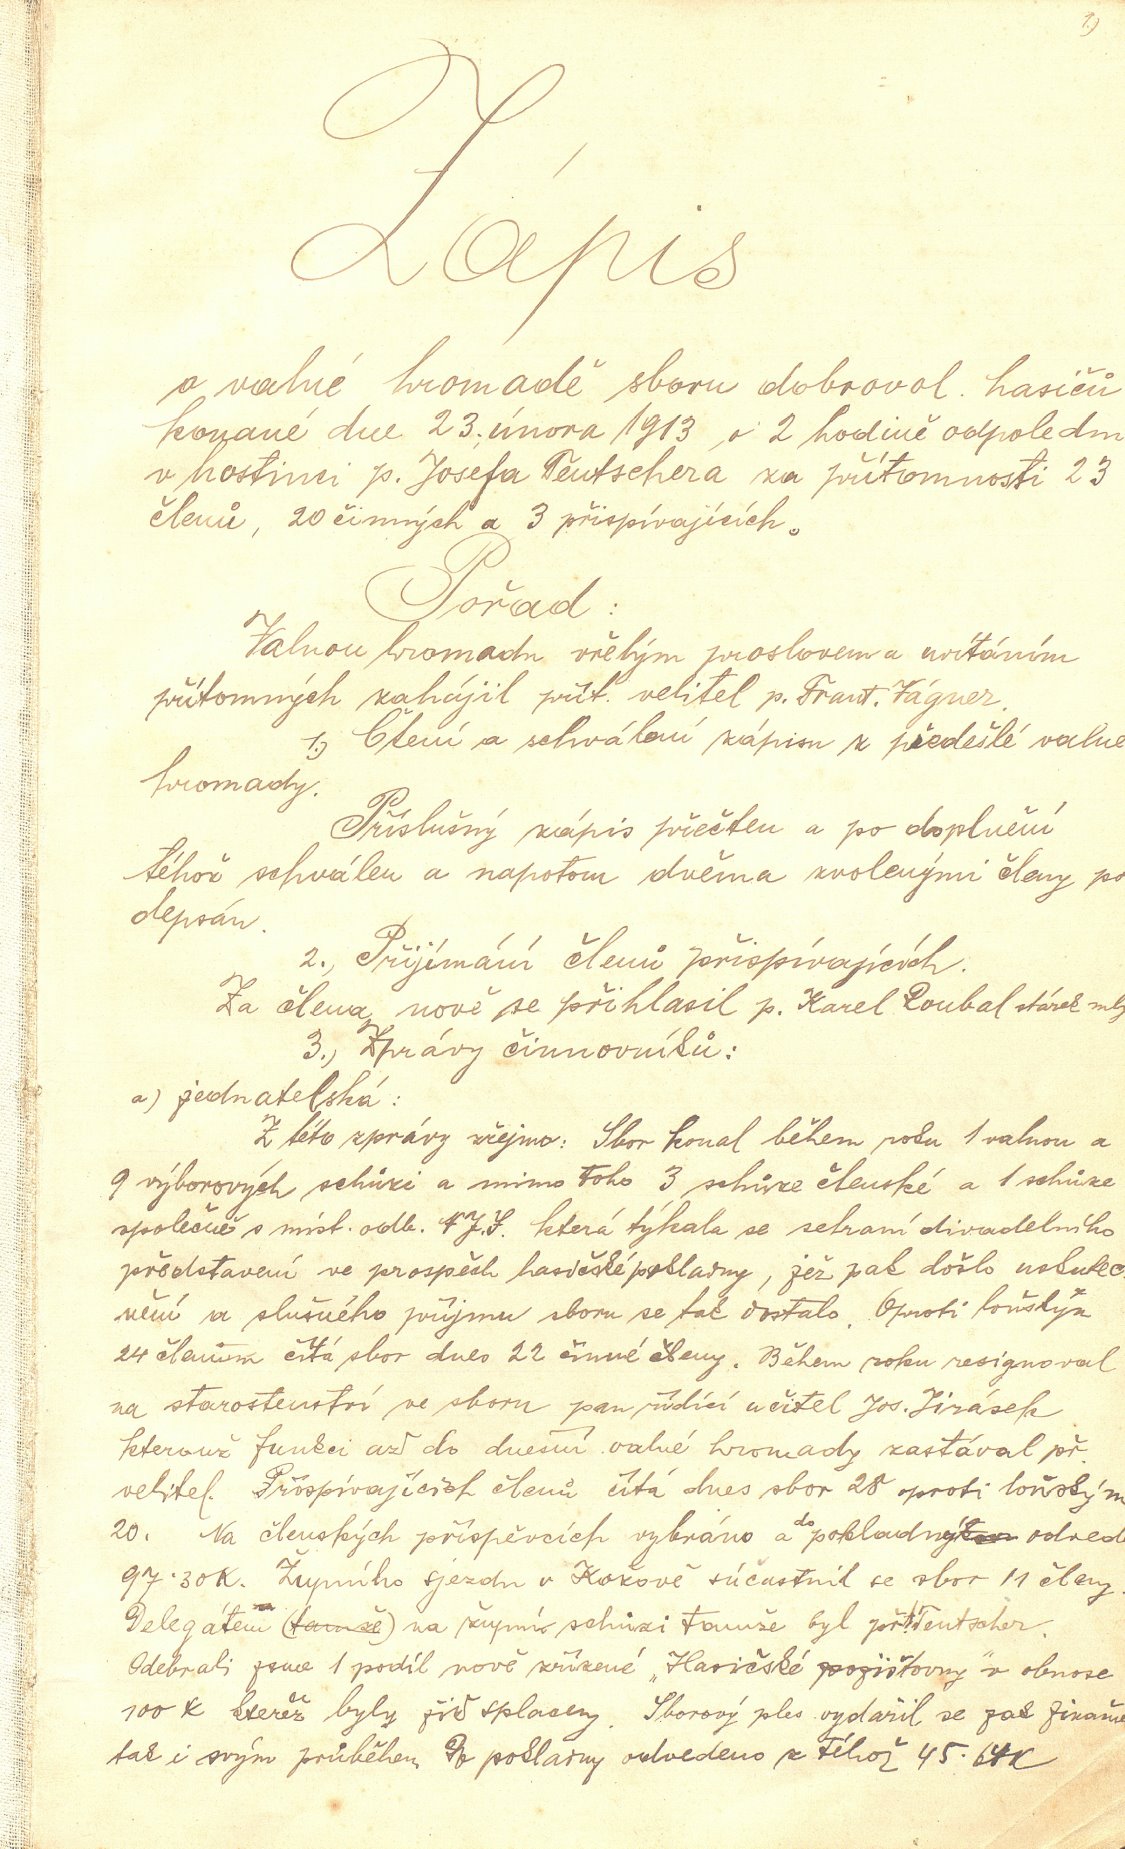 1)
Zápis
o valné hromadě sboru dobrovol. hasičů
konané dne 23. února 1913 o 2 hodině odpoledn
v hostinci p. Josefa Teutschera za přítomnosti 23
členů, 20 činných a 3 přispívajících.
Pořad:
Valnou hromadu vřelým proslovem a uvítáním
přítomných zahájil přít. velitel p. Frant. Vágner.
1.) Čtení a schválení zápisu z předešlé valné
hromady.
Příslušný zápis přečten a po doplnění
téhož schválen a napotom dvěma zvolenými členy po
depsán.
2., Přijímání členů přispívajících.
Za člena nově se přihlasil p. Karel Roubal stárek mlý
3., Zprávy činnovníků:
a) jednatelská:
Z této zprávy zřejmo: Sbor konal během roku 1 valnou a
9 výborových schůzi a mimo toho 3 schůze členské a 1 schůze
společně s míst. odb. která týkala se sehraní divadelního
představení ve prospěch hasičské pokladny, jež pak došlo uskuteč
nění a slušného příjmu sboru se tak dostalo. Oproti loňským
24 členům čítá sbor dnes 22 činné členy. Během roku resignoval
na starostenství ve sboru pan řídící učitel Jos. Jirásek
kterouž funkci až do dnešní valné hromady zastával př.
velitel. Přispívajících členů čítá dnes sbor 28 oproti loňským
20. Na členských příspěvcích vybráno a do pokladny odvede
97.30K. Župního sjezdu v súčastnil se sbor 11 členy.
Delegátem (tamže) na župní schůzi tamže byl př. Teutscher.
Odebrali jsme 1 podíl nově zřízené „Hasičské pojišťovny" v obnose
100 K kteréž byly již splaceny. Sborový ples vydařil se jak finačně
tak i svým průběhem Do pokladny odvedeno z téhož 45.64K